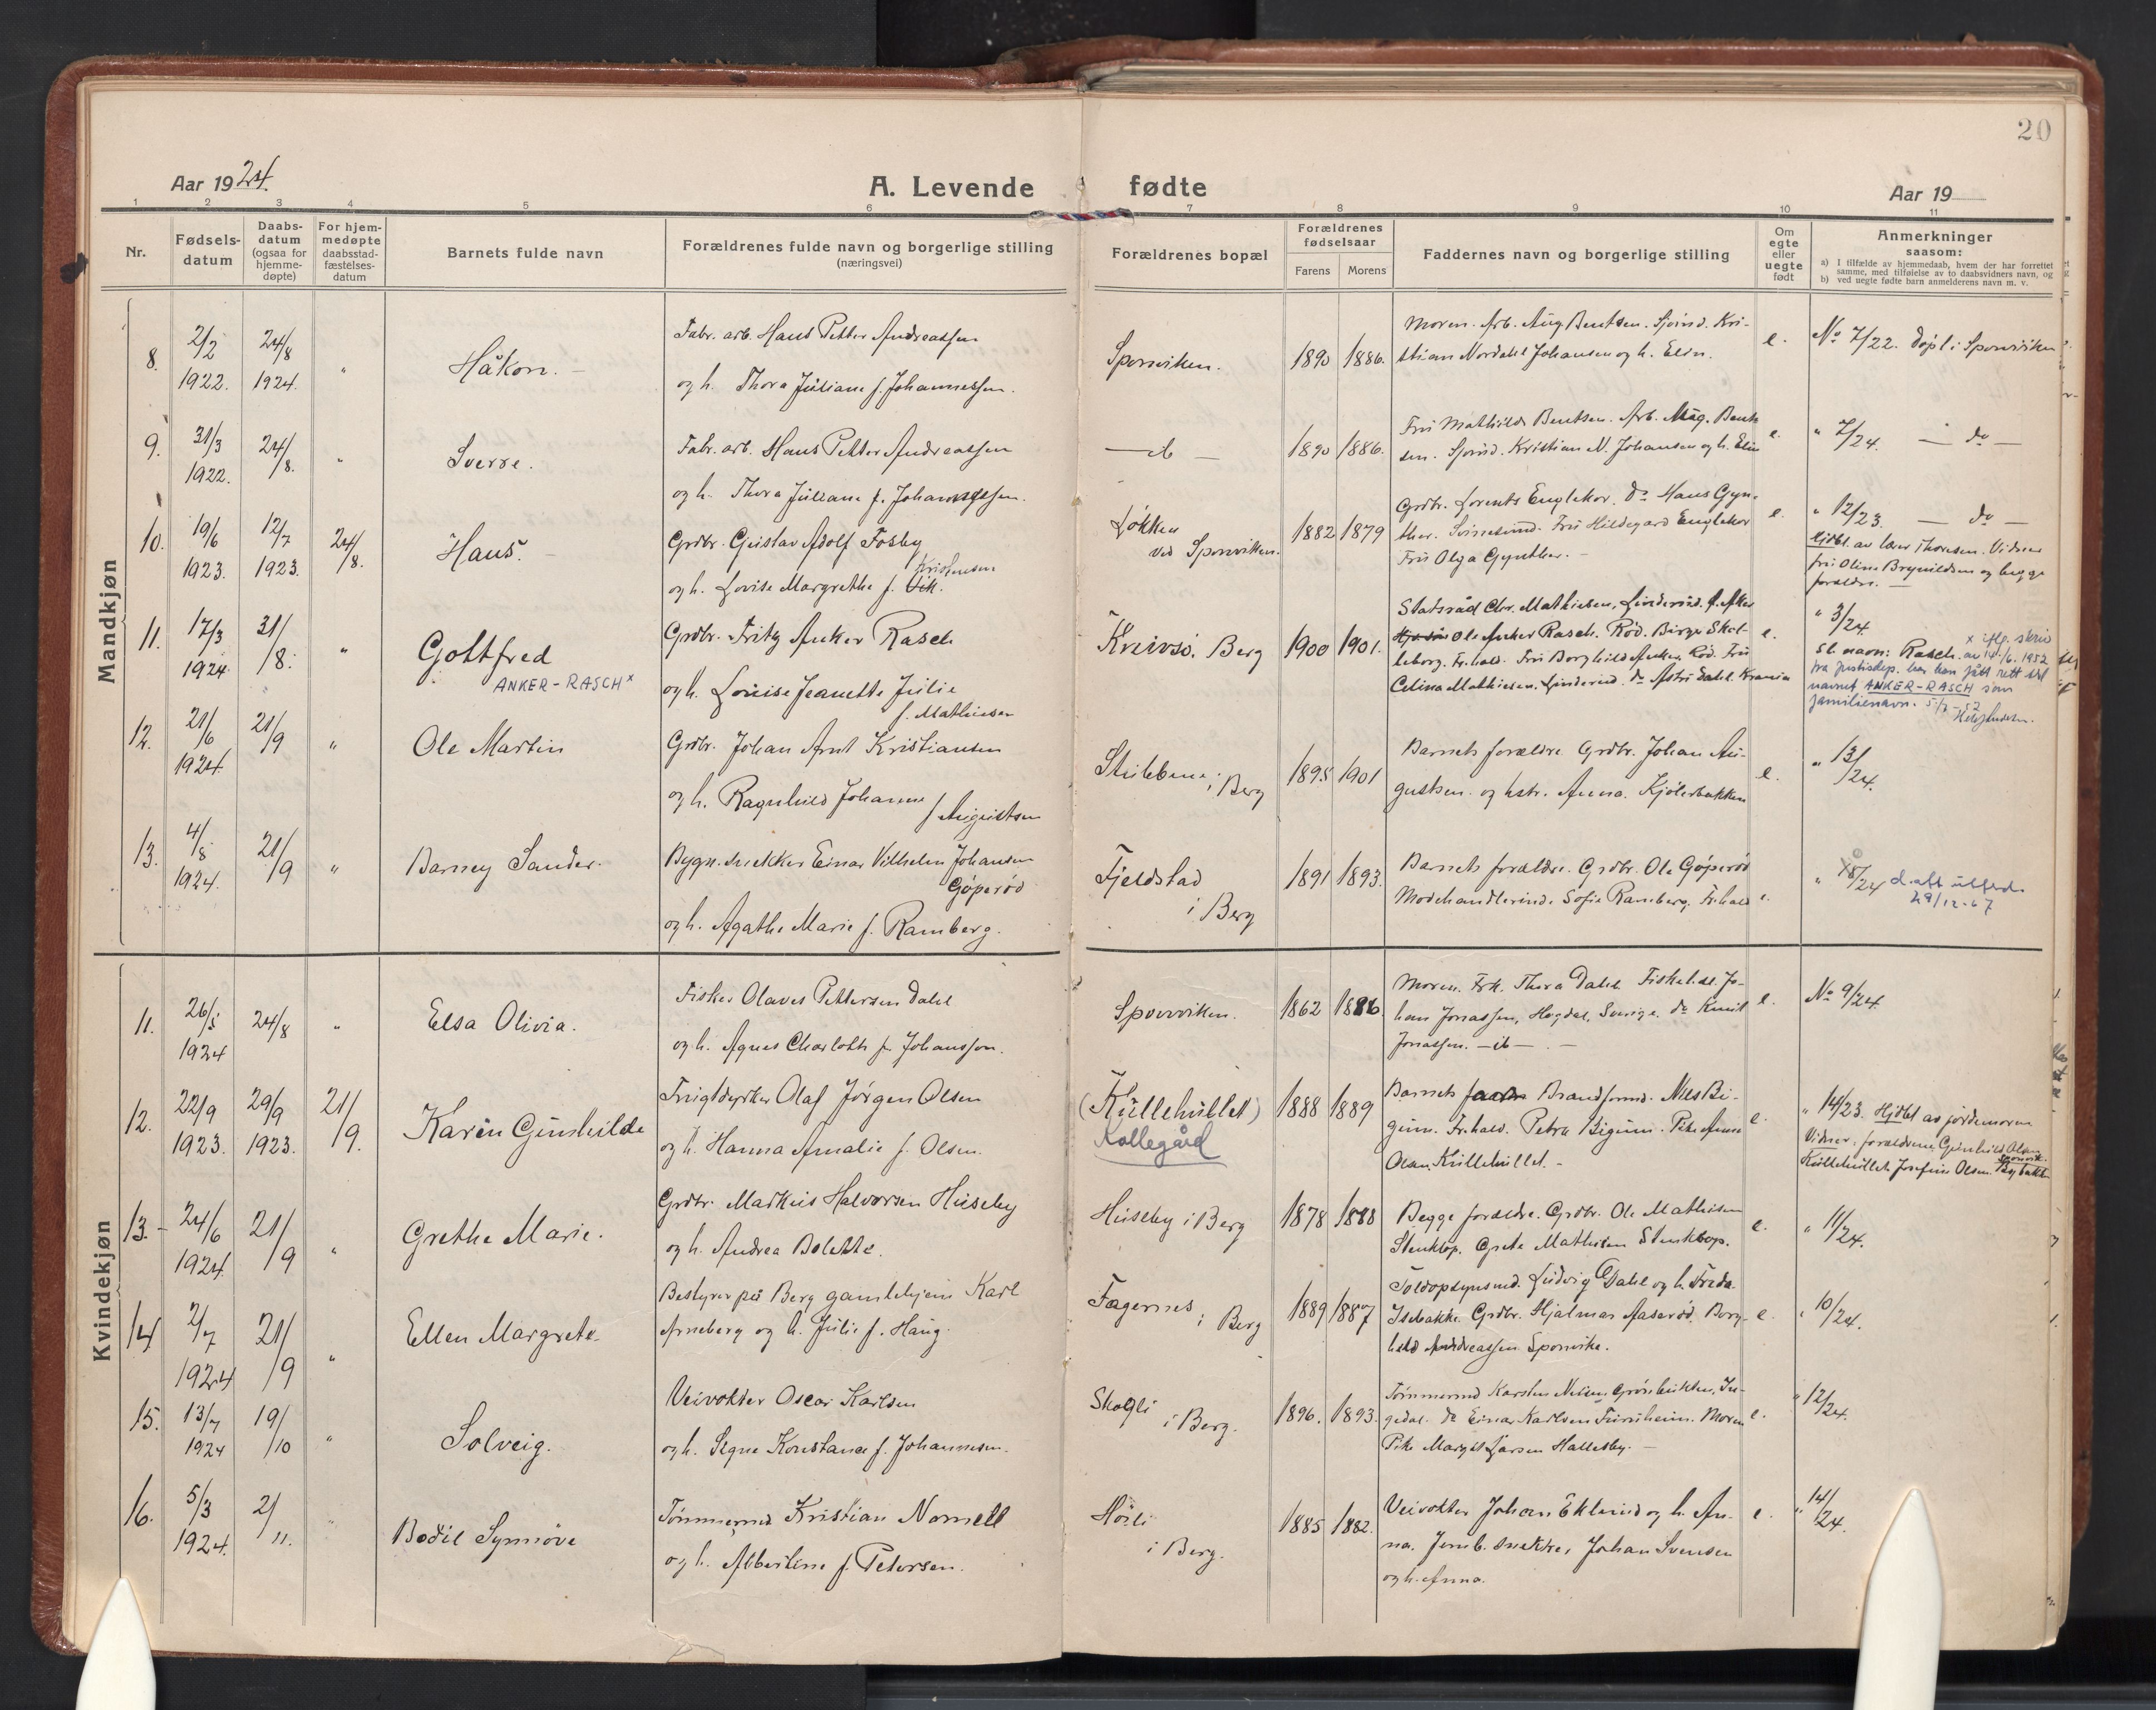 20
Aar 1924.
A. Levende fødte
Aar 19
1 2 3 4 5 6 7 8 9 10 11
Nr.
Fødselsdatum
Daabsdatum (ogsaa for hjemmedøpte)
For hjemmedøpte daabsstadfæstelsesdatum
Barnets fulde navn
Forældrenes fulde navn og borgerlige stilling
(næringsvei)
Forældrenes bopæl
Forældrenes fødselsaar
Farens Morens
Faddernes navn og borgerlige stilling
Om egte eller uegte født
Anmerkninger
saasom:
a) I tilfælde av hjemmedaab, hvem der har forrettet samme, med tilføielse av to daabsvidners navn, og
b) ved uegte fødte barn anmelderens navn m. v.
Mandkjøn
8. 2/2 1922. 24/8 1924. " Håkon. –
Fabr. arb. Hans Petter Andreassen
og h. Thora Juliane f. Johannessen.
Sponviken. 1890 1886.
Moren. Arb. Aug. Bentsen. Sjömd. Kri-
stian Nordahl Johansen og h. Elin.
e. No 7/22. Döpt i Sponviken
9. 31/3 1922. 24/8. " Sverre.
Fabr. arb. Hans Petter Andreassen
og h. Thora Juliane f. Johannessen.
— ib — 1890 1886.
Fru Mathilde Bentsen. Arb. Aug. Bent-
sen. Sjömd. Kristian N. Johansen og h. Elin
e. " 7/24. — do —
10. 19/6 1923. 12/7 1923. 24/8. Hans. –
Grdbr. Gustav Adolf Fosby
Kristensen
og h. Lovise Margrethe f. Vik.
Løkken
ved Sponviken. 1882 1879
Grdbr. Lorents Englekor. do Hans Gyn-
ther. Svinesund. Fru Hildegard Englekor
Fru Olga Gynther. –
e. " 12/23. — do —
Hjdbt. av lærer Thoresen. Vidner
fru Oline Brynildsen og begge
forældre. —
11. 17/3 1924. 31/8. " Gottfred
ANKER-RASCH x
Grdbr. Fritz Anker Rasch
og h. Louise Jeanette Julie
f. Mathiesen
Knivsö, Berg 1900 1901.
Statsråd Chr. Mathiesen, Linderud. f. Aker
Ole Anker Rasch. Röd. Birger Skel-
leborg. Fr.hald. Fru Borghild Anker, Röd. Fru
Celina Mathiesen, Linderud. do Astri Dahl. Krania
e. " 3/24
Sl. navn: Rasch. x iflg. skriv av 14/6. 1952
fra Justisdep. har han fått rett til
navnet ANKER-RASCH som
familienavn. 5/7-52
12. 21/6 1924. 21/9 " Ole Martin
Grdbr. Johan Arnt Kristiansen
og h. Ragnhild Johanne f. Augustsen
i Berg 1895 1901
Barnets forældre. Grdbr. Johan Au-
gustsen. og hstr. Anna. Kjölerbakken
e. " 13/24.
13. 4/8 1924. 21/9 " Barney Sander.
Bygn. snekker Einar Vilhelm Johansen
Göperöd
og h. Agathe Marie f. Ramberg.
Fjeldstad
i Berg 1891 1893.
Barnets forældre. Grdbr. Ole Göperöd
Modehandlerinde Sofie Ramberg, Fr.hald
e. " /24 d.att utferd.
29/12-67
Kvindekjøn
11. 26/5 1924 24/8 " Elsa Olivia.
Fisker Olaves Pettersen Dahl
og h. Agnes Charlotte f. Johansson.
Sponviken. 1862 1886.
Moren. Frk. Thora Dahl. Fiskehdl. Jo-
han Jonassen, Hogdal, Sverige. do Knut
Jonassen. — ib — . –
e. No 9/24.
12. 22/9 1923. 29/9 1923. 21/9. Karin Gunhilde
Frugtdyrker Olaf Jörgen Olsen
og h. Hanna Amalie f. Olsen.
(Kullehullet)
Kollegård 1888 1889
Barnets Brandformd. Nils Bi-
gum. Fr.hald. Petra Bigum. Pike Anne
Olsen Krillehullet. –
e. " 14/23. Hjdbt av jordmoren
Vidner: forældrene Gunhild Olsen
Kullehullet, Josefine Olsen
13. – 24/6 1924. 21/9 " Grethe Marie.
Grdbr. Markus Halvorsen Huseby
og h. Andrea Bolette.
Huseby i Berg 1878 1888
Begge forældre. Grdbr. Ole Mathisen
Stenklop. Grete Mathisen Stenklop.
e. " 11/24.
14 2/7 1924 21/9 " Ellen Margrete.
Bestyrer på Berg gamlehjem Karl
Arneberg og h. Julie f. Haug.
Fagernes
i Berg 1889 1887
Toldopsynsmd. Ludvig Dahl og h. Freda.
Isebakke. Grdbr. Hjalmar Aaseröd. Borg-
hild Andreassen Sponvika.
e. " 10/24.
15. 13/7 1924 19/10 " Solveig.
Veivokter Oscar Karlsen
og h. Signe Konstance f. Johannesen.
Skogli
i Berg. 1896. 1893.
Tömmermd Karsten Nilsen Grönbukten, In-
gedal. do Einar Karlsen Furuheim. Moren
Pike Margit Larsen Hallesby. –
e. " 12/24.
16. 5/3 1924. 2/11. " Bodil Synnöve
Tömmermd Kristian Nornell
og h. Albertine f. Petersen.
Hösli
i Berg. 1885 1882.
Veivokter Johan Eklund og h. An-
na. Jernb. snekker Johan Svensen
og h. Anna.
e. " 14/24.